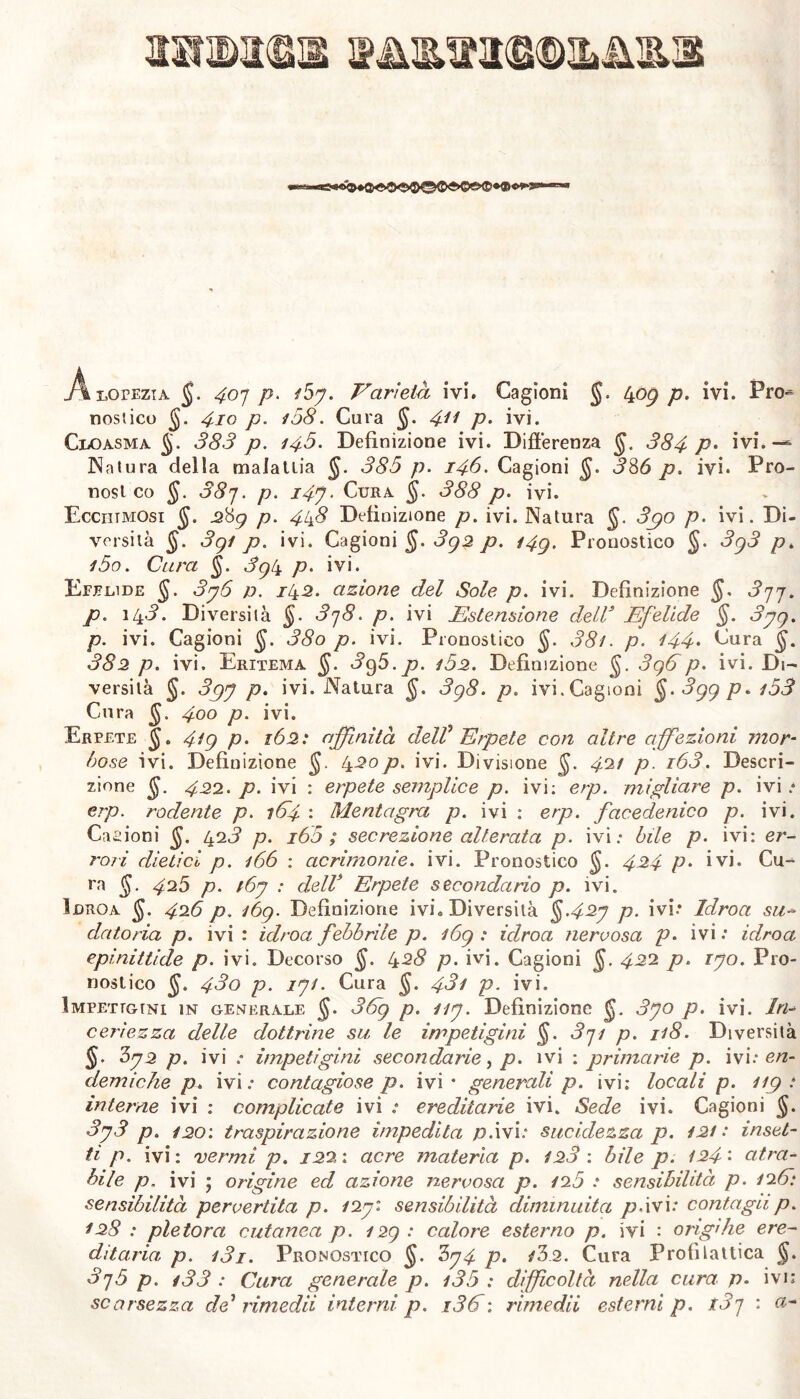 INDICE PARTICOLARE
ALOPEZIA §. 407 p. 157. Varietà ivi. Cagioni §. 409 p. ivi. Pro-
nostico §. 410 p. 158. Cura §. 411 p. ivi.
CLOASMA §. 383 p. 145. Definizione ivi. Differenza §. 384 p. ivi. —
Natura della malattia §. 385 p. 146. Cagioni §. 386 p. ivi. Pro-
nost co §. 387. p. 147. CURA §. 388 p. ivi.
ECCHIMOSI §. 289 p. 448 Definizione p. ivi. Natura §. 390 p. ivi. Di-
versità §. 391 p. ivi. Cagioni §. 392 p. 149. Pronostico §. 393 p.
150. Cura §. 394 p. ivi.
EFELIDE §. 376 p. 142. azione del Sole p. ivi. Definizione §. 377.
p. 143. Diversità §. 378. p. ivi Estensione dell' Efelide §. 379.
p. ivi. Cagioni §. 380 p. ivi. Pronostico §. 381. p. 144. Cura §.
382 p. ivi. ERITEMA §. 395. p. 152. Definizione §. 396 p. ivi. Di-
versità §. 397 p. ivi. Natura §. 398. p. ivi. Cagioni §. 399 p. 153
Cura §. 400 p. ivi.
ERPETE §. 419 p. 162: affinità dell' Erpete con altre affezioni mor-
bose ivi. Definizione §. 420 p. ivi. Divisione §. 421 p. 163. Descri-
zione §. 422. p. ivi : erpete semplice p. ivi: erp. migliare p. ivi :
erp. rodente p. 164 : Mentagra p. ivi : erp. facedenico p. ivi.
Cagioni §. 423 p. 165 ; secrezione alterata p. ivi: bile p. ivi: er-
rori dietici p. 166 : acrimonie. ivi. Pronostico §. 424 p. ivi. Cu-
ra §. 425 p. 167 : dell' Erpete secondario p. ivi.
IDROA §. 426 p. 169. Definizione ivi. Diversità §.427 p. ivi: Idroa su-
datoria p. ivi : idroa febbrile p. 169 : idroa nervosa p. ivi: idroa
epinittide p. ivi. Decorso §. 428 p. ivi. Cagioni §. 422 p. 170. Pro-
nostico §. 430 p. 171. Cura §. 431 p. ivi.
IMPETIGINI IN GENERALE §. 369 p. 117. Definizione §. 370 p. ivi. In-
certezza delle dottrine su le impetigini §. 371 p. 118. Diversità
§. 372 p. ivi : impetigini secondarie, p. ivi : primarie p. ivi: en-
demiche p. ivi: contagiose p. ivi • generali p. ivi: locali p. 119 :
interne ivi : complicate ivi : ereditarie ivi. Sede ivi. Cagioni §.
373 p. 120: traspirazione impedita p.ivi: sucidezza p. 121: inset-
ti p. ivi: vermi p. 122: acre materia p. 123 : bile p. 124: atra-
bile p. ivi ; origine ed azione nervosa p. 125 : sensibilità p. 126:
sensibilità pervertita p. 127: sensibilità diminuita p.ivi: contagii p.
128 : pletora cutanea p. 129 : calore esterno p. ivi : origihe ere-
ditaria p. 131. PRONOSTICO §. 374 p. 132. Cura Profilattica §.
375 p. 133 : Cura generale p. 135 : difficoltà nella cura p. ivi:
scarsezza de' rimedii interni p. 136: rimedii esterni p. 137 : a-